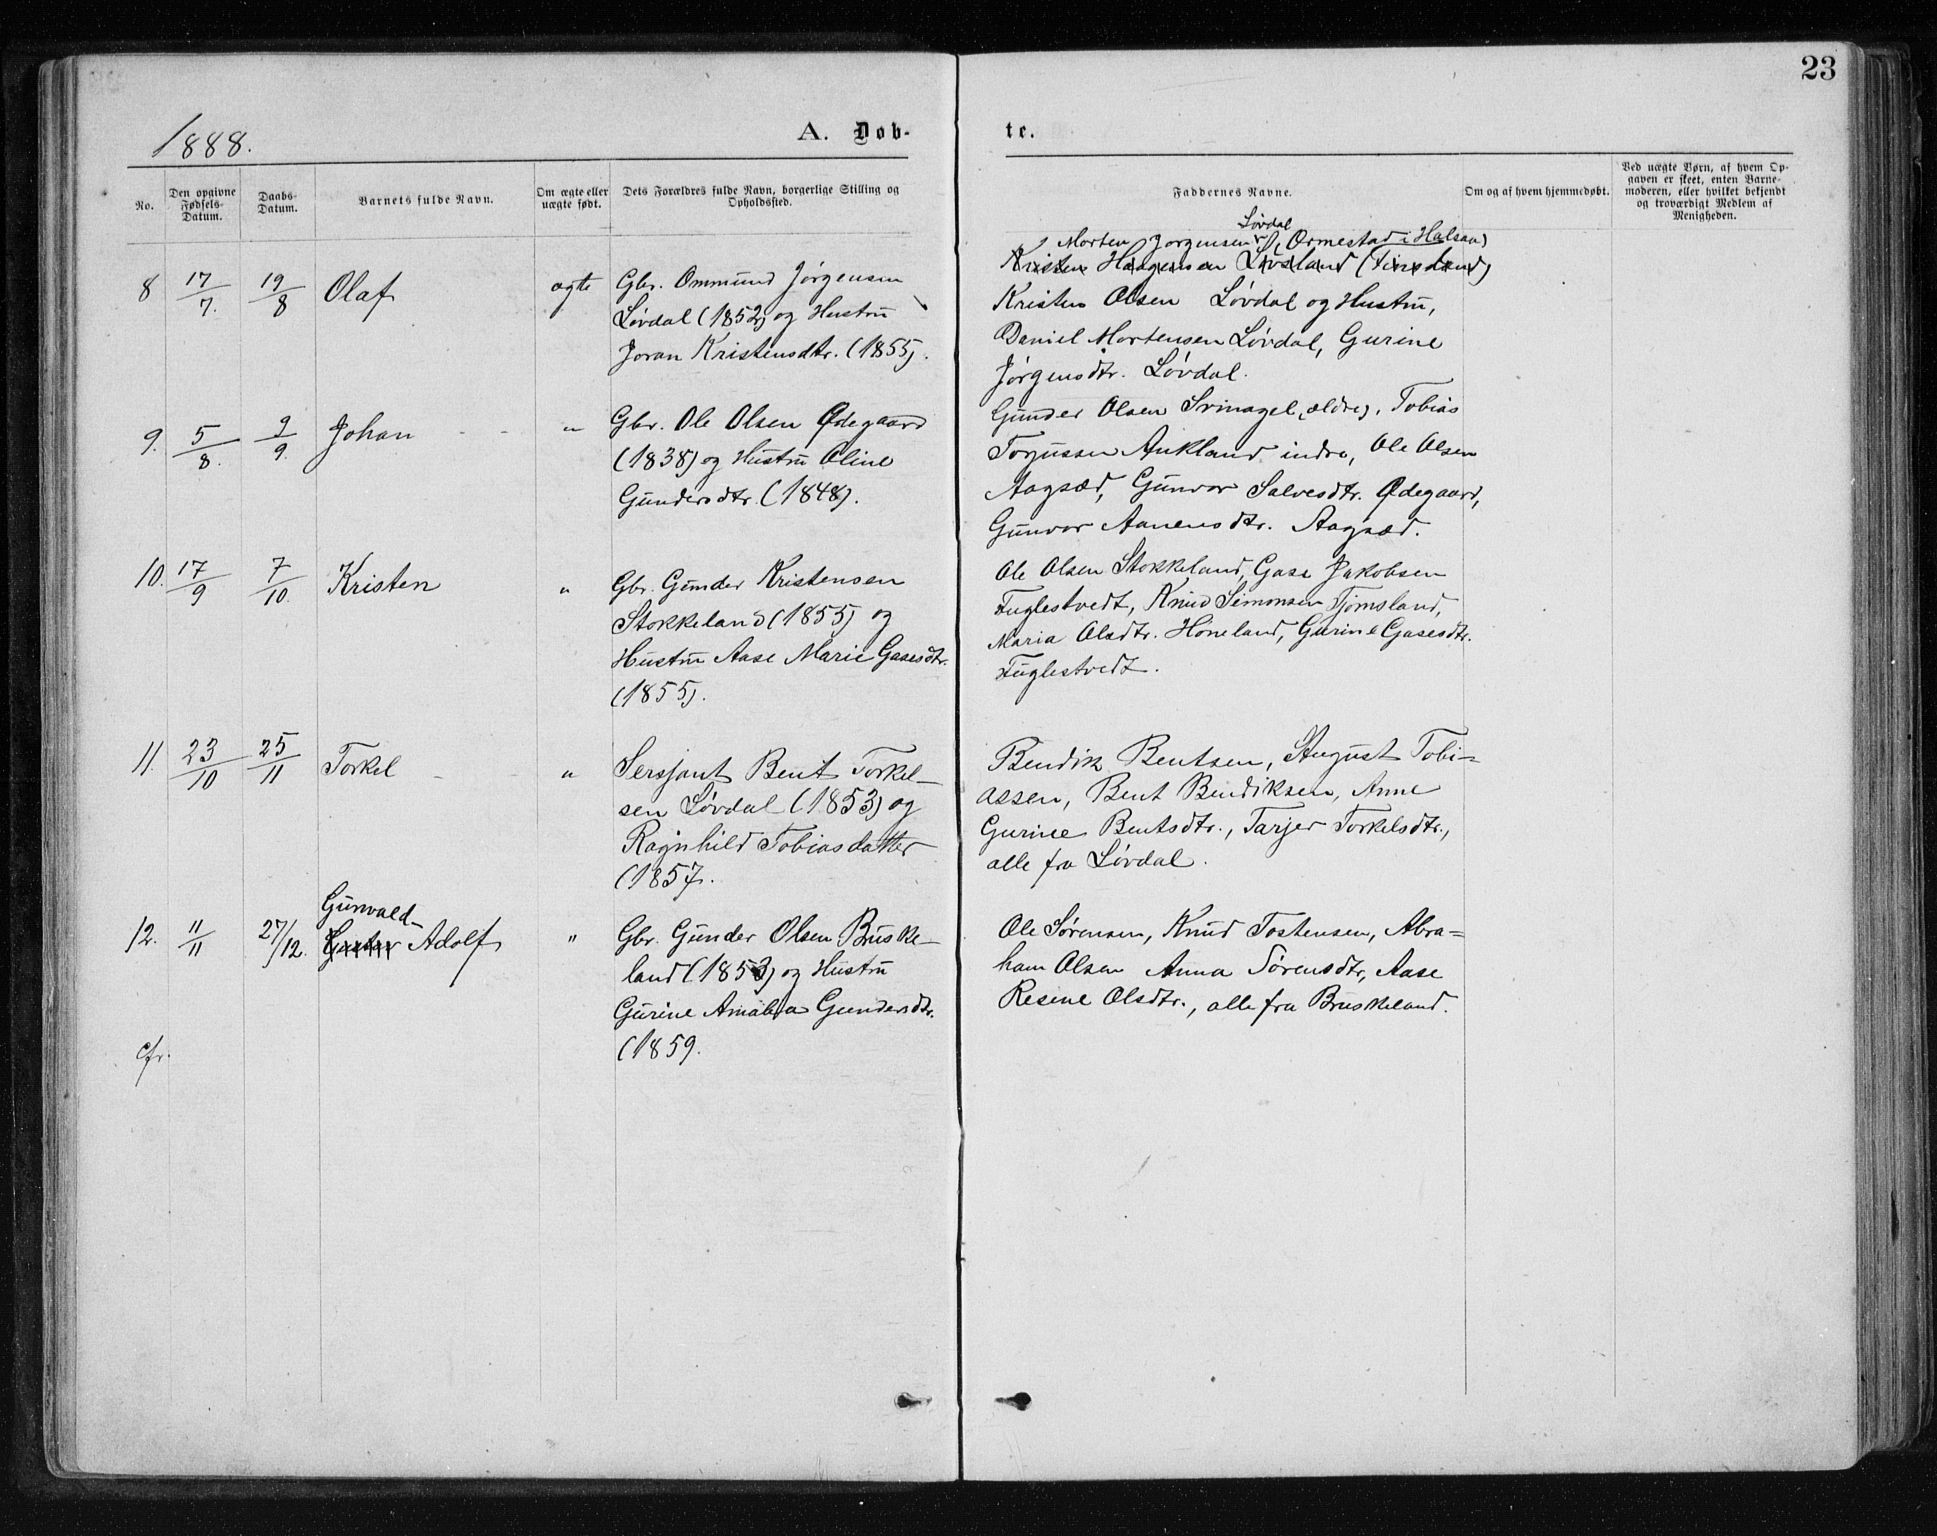 23
1888.
A. Døb-
te.
No.
Den opgivne Fødsels-Datum.
Daabs-Datum.
Barnets fulde Navn.
Om ægte eller uægte født.
Dets Forældres fulde Navn, borgerlige Stilling og Opholdssted.
Faddernes Navne.
Om og af hvem hjemmedøbt.
Ved uægte Børn, af hvem Op-
gaven er skeet, enten Barne-
moderen, eller hvilket bekjendt
og troværdigt Medlem af
Menigheden.
8 17/7. 19/8 Olaf ægte
Gbr. Ommund Jørgensen
Løvdal (1852) og Hustru
Joran Kristensdtr. (1855).
Løvdal
Morten Jørgensen (Ormestad i Halsaa)
Kristen Haagensen
Kristen Olsen Løvdal og Hustru,
Daniel Mortensen Løvdal, Gurine
Jørgensdtr. Løvdal.
9. 5/8. 9/9. Johan - - "
Gbr. Ole Olsen Ødegaard
(1838) og Hustru Oline
Gundersdtr. (1848).
Gunder Olsen Svinagel (ældre), Tobias
Torjussen Aukland indre, Ole Olsen
Aagsæd, Gunvor Salvesdtr. Ødegaard,
Gunvor Aanensdtr. Aagsæd.
10. 17/9 7/10. Kristen "
Gbr. Gunder Kristensen
Stokkeland (1855) og
Hustru Aase Marie Gasesdtr.
(1855).
Ole Olsen Stokkeland, Gase Jakobsen
Fuglestvedt, Knud Simonsen Tjomsland,
Maria Olsdtr. Høneland, Gurine Gasesdtr.
Fuglestvedt.
11. 23/10 25/11 Torkel - - "
Sersjant Bent Torkel-
sen Løvdal (1853) og
Ragnhild Tobiasdatter
(1857.
Bendik Bentsen, August Tobi=
assen, Bent Bendiksen, Anne
Gurine Bentsdtr., Tarjer Torkelsdtr.,
alle fra Løvdal.
Gunvald-
12. 11/11 27/12. Adolf "
Gbr. Gunder Olsen Bruske-
land (1853) og Hustru
Gurine Amalia Gundersdtr.
(1859.
Ole Sørensen, Knud Tostensen, Abra=
ham Olsen Anna Sørensdtr, Aase
Resine Olsdtr., alle fra Bruskeland.
cfr.